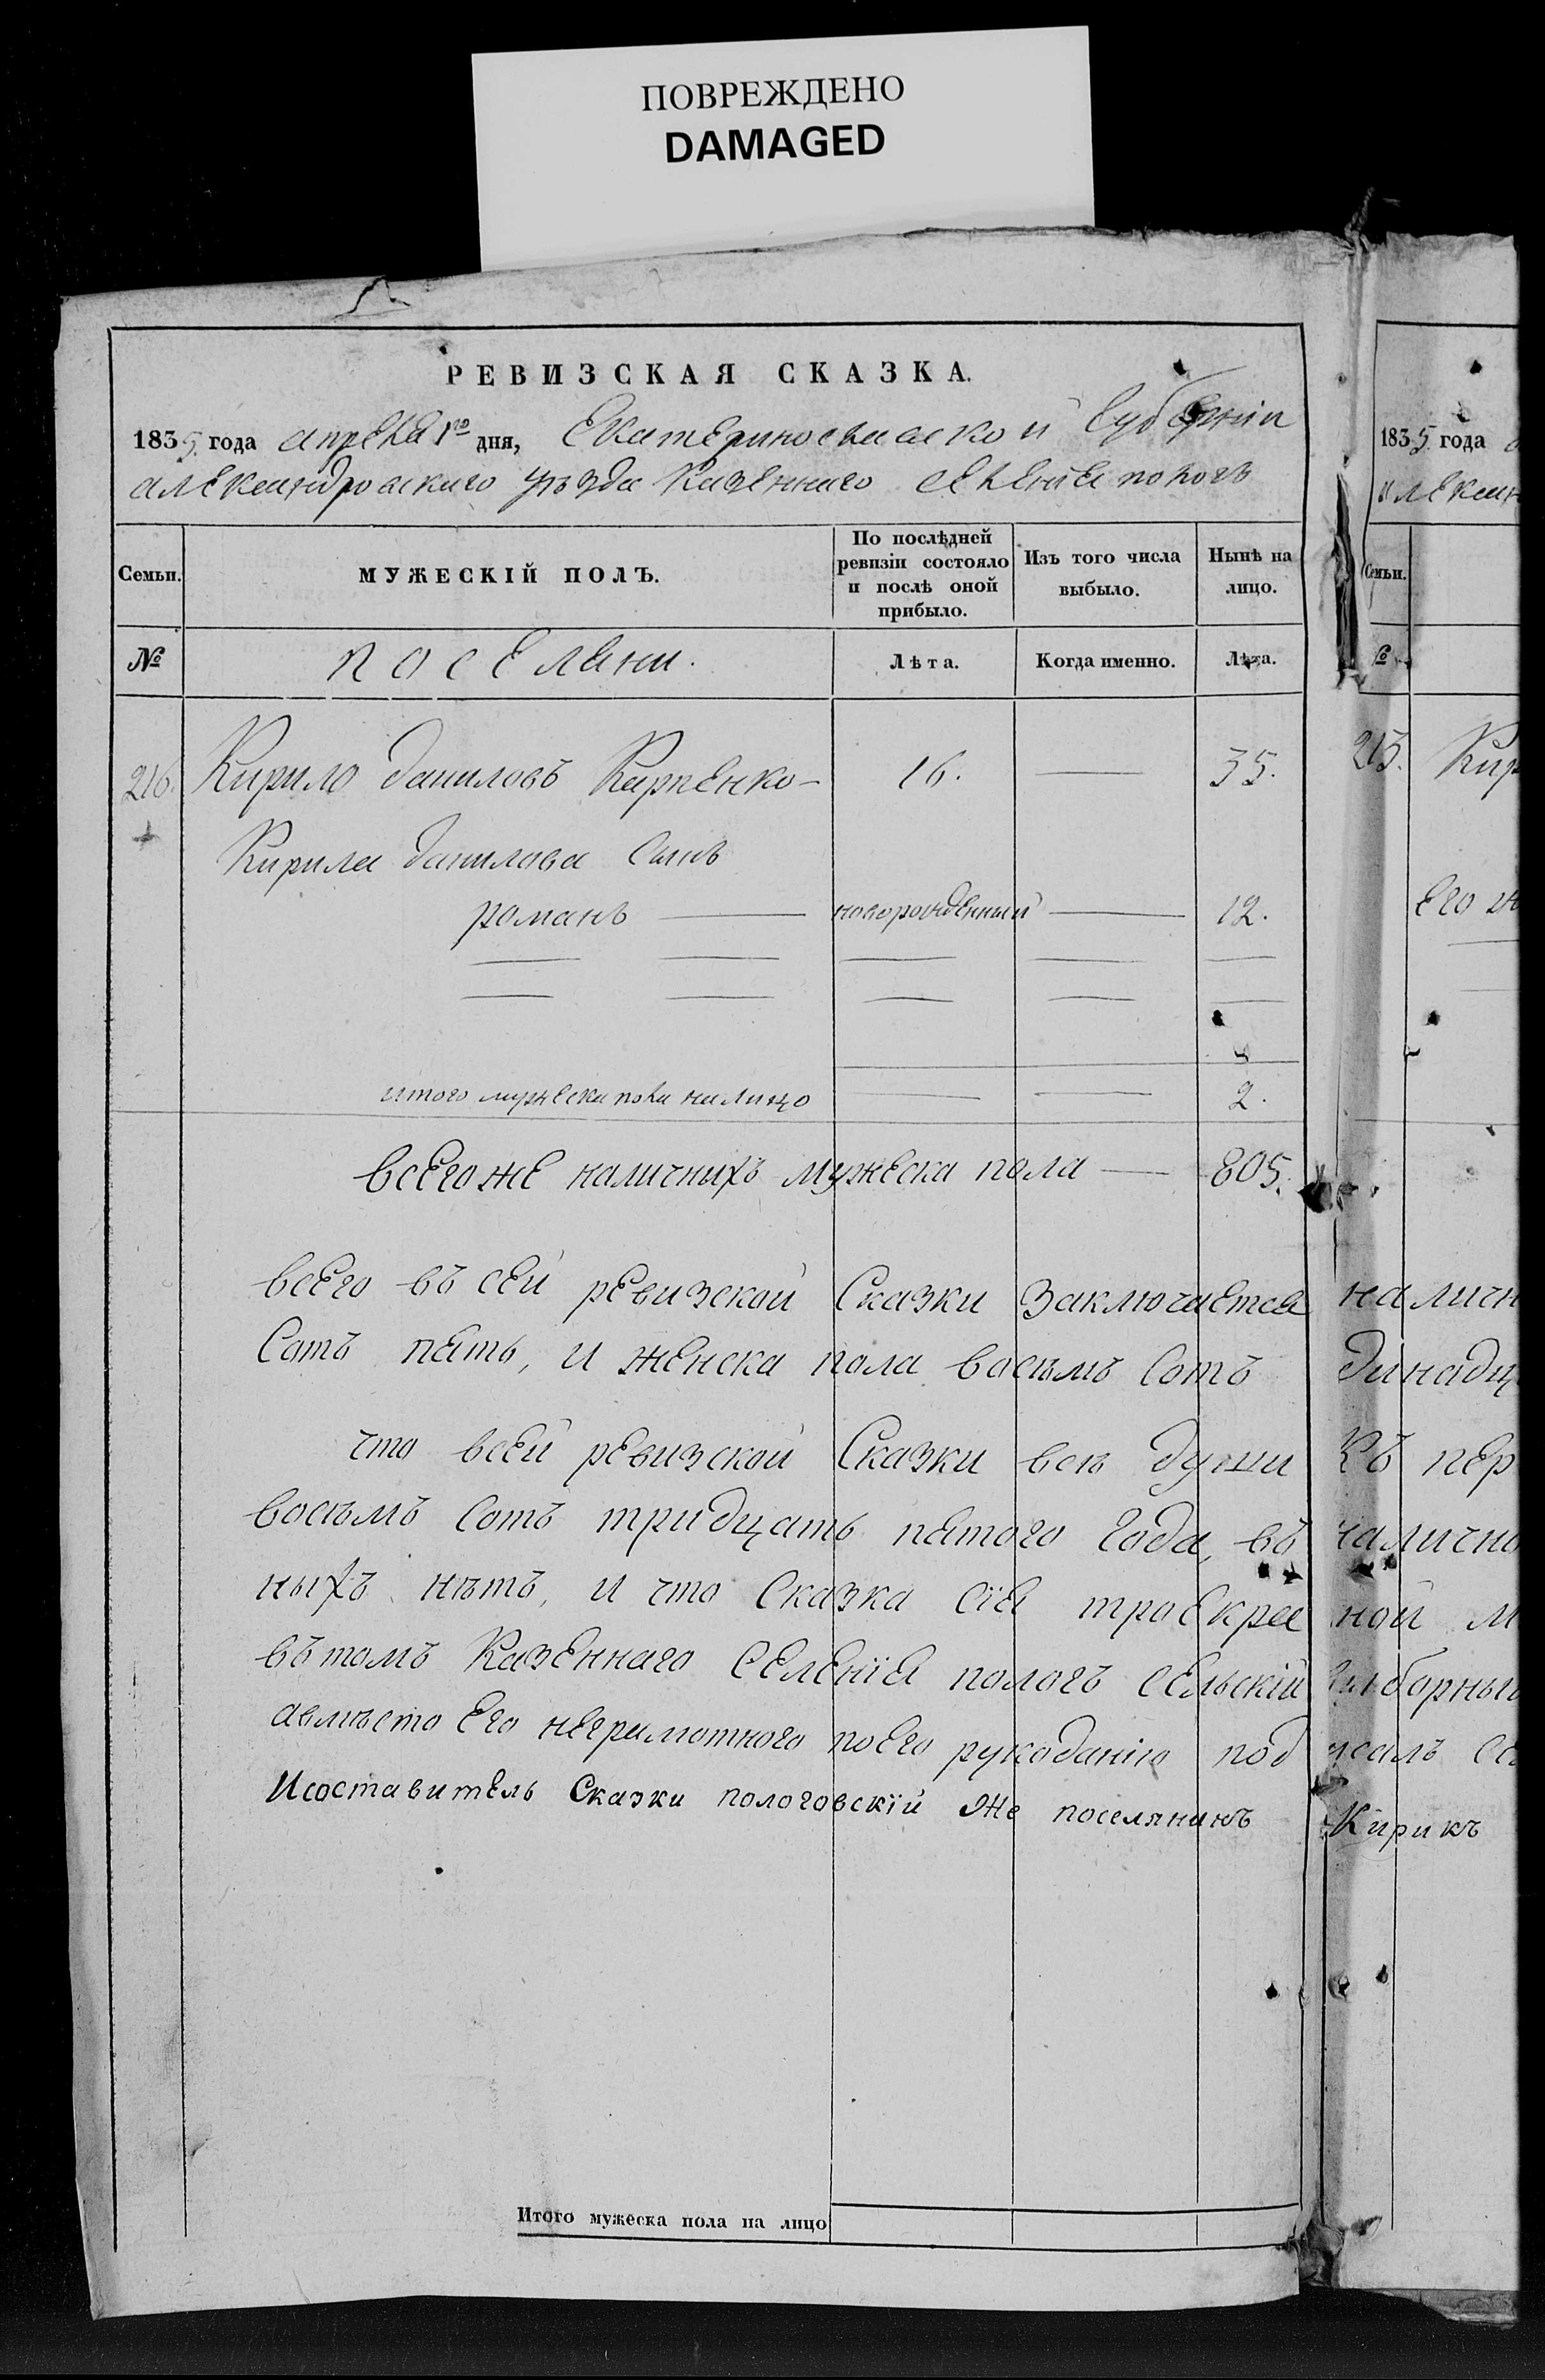 ПОВРЕЖДЕНО
DAMAGED
РЕВИЗСКАЯ СКАЗКА.
1835 года апреля 1го дня, Екатеринославской Губерніи
александровскаго уѣзда Казеннаго селенія пологъ
Семьи.
МУЖЕСКІЙ ПОЛЪ.
По послѣдней ревизіи состояло и послѣ оной прибыло.
Изъ того числа выбыло.
Нынѣ на лицо.
№
поселяни.
Лѣта.
Когда именно.
Лѣта.
216. Кирило даниловъ Карпенко — 16. — 35.
Кирила данилова Сынъ
романъ — новорожденный — 12.
итого мужеска пола налицо — — 2.
всего же наличнихъ мужеска пола — 805.
всего въ сей ревизской Сказки заключается
Сотъ пять, и женска пола восъмъ Сотъ
что всей ревизской Сказки всѣ души
восъмъ Сотъ тридцать пятого Года, въ
ныхъ нѣтъ, и что Сказка сія троекрат
въ томъ Казеннаго Селенія пологъ сельскій
авмѣсто Его неграмотного поего рукоданію под
Исоставитель Сказки пологовскій же поселянинъ
1835 года
алексан
Семьи.
№
213. Кир
Его ж
наличн
динадц
Къ пер
налично
ной м
выборный
исалъ
Кирикъ
Итого мужеска пола на лицо